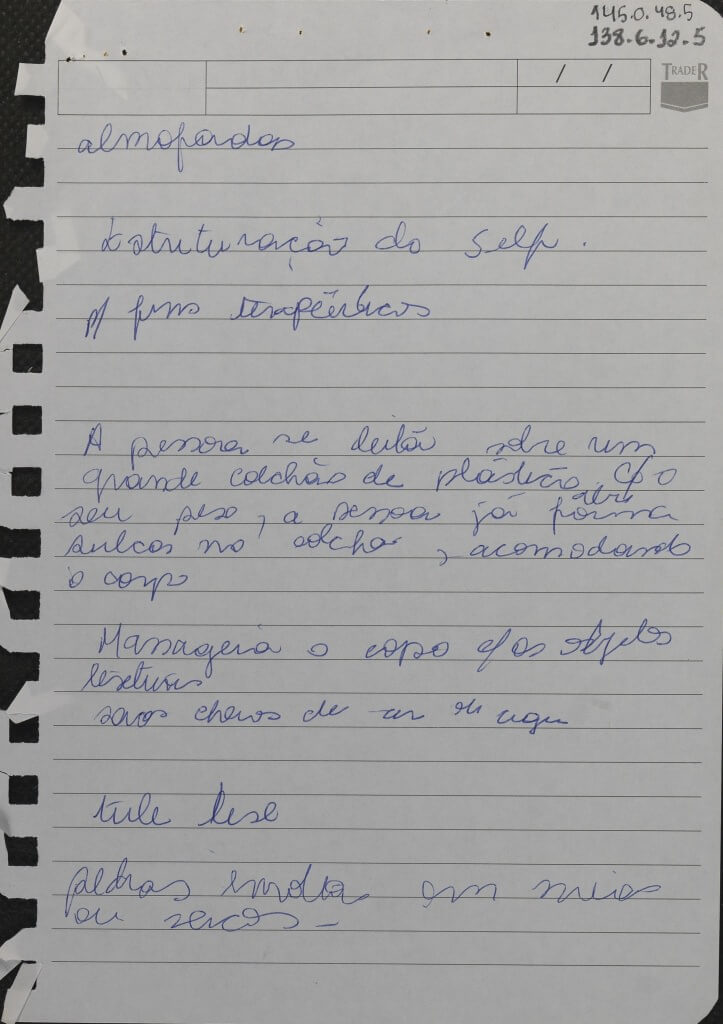 145.0.48.5
138.6.12.5
/ /
TRADER
almofadas
Estruturação do Self.
p/ fins terapêuticos
A pessoa se deita sobre um
grande colchão de plástico, c/ o
seu peso, a pessoa já abre
sulcos no colchão, acomodando
o corpo
Massageia o corpo c/ os objetos
sacos cheios de ar ou agu
tule
pedras em meias
ou sacos –